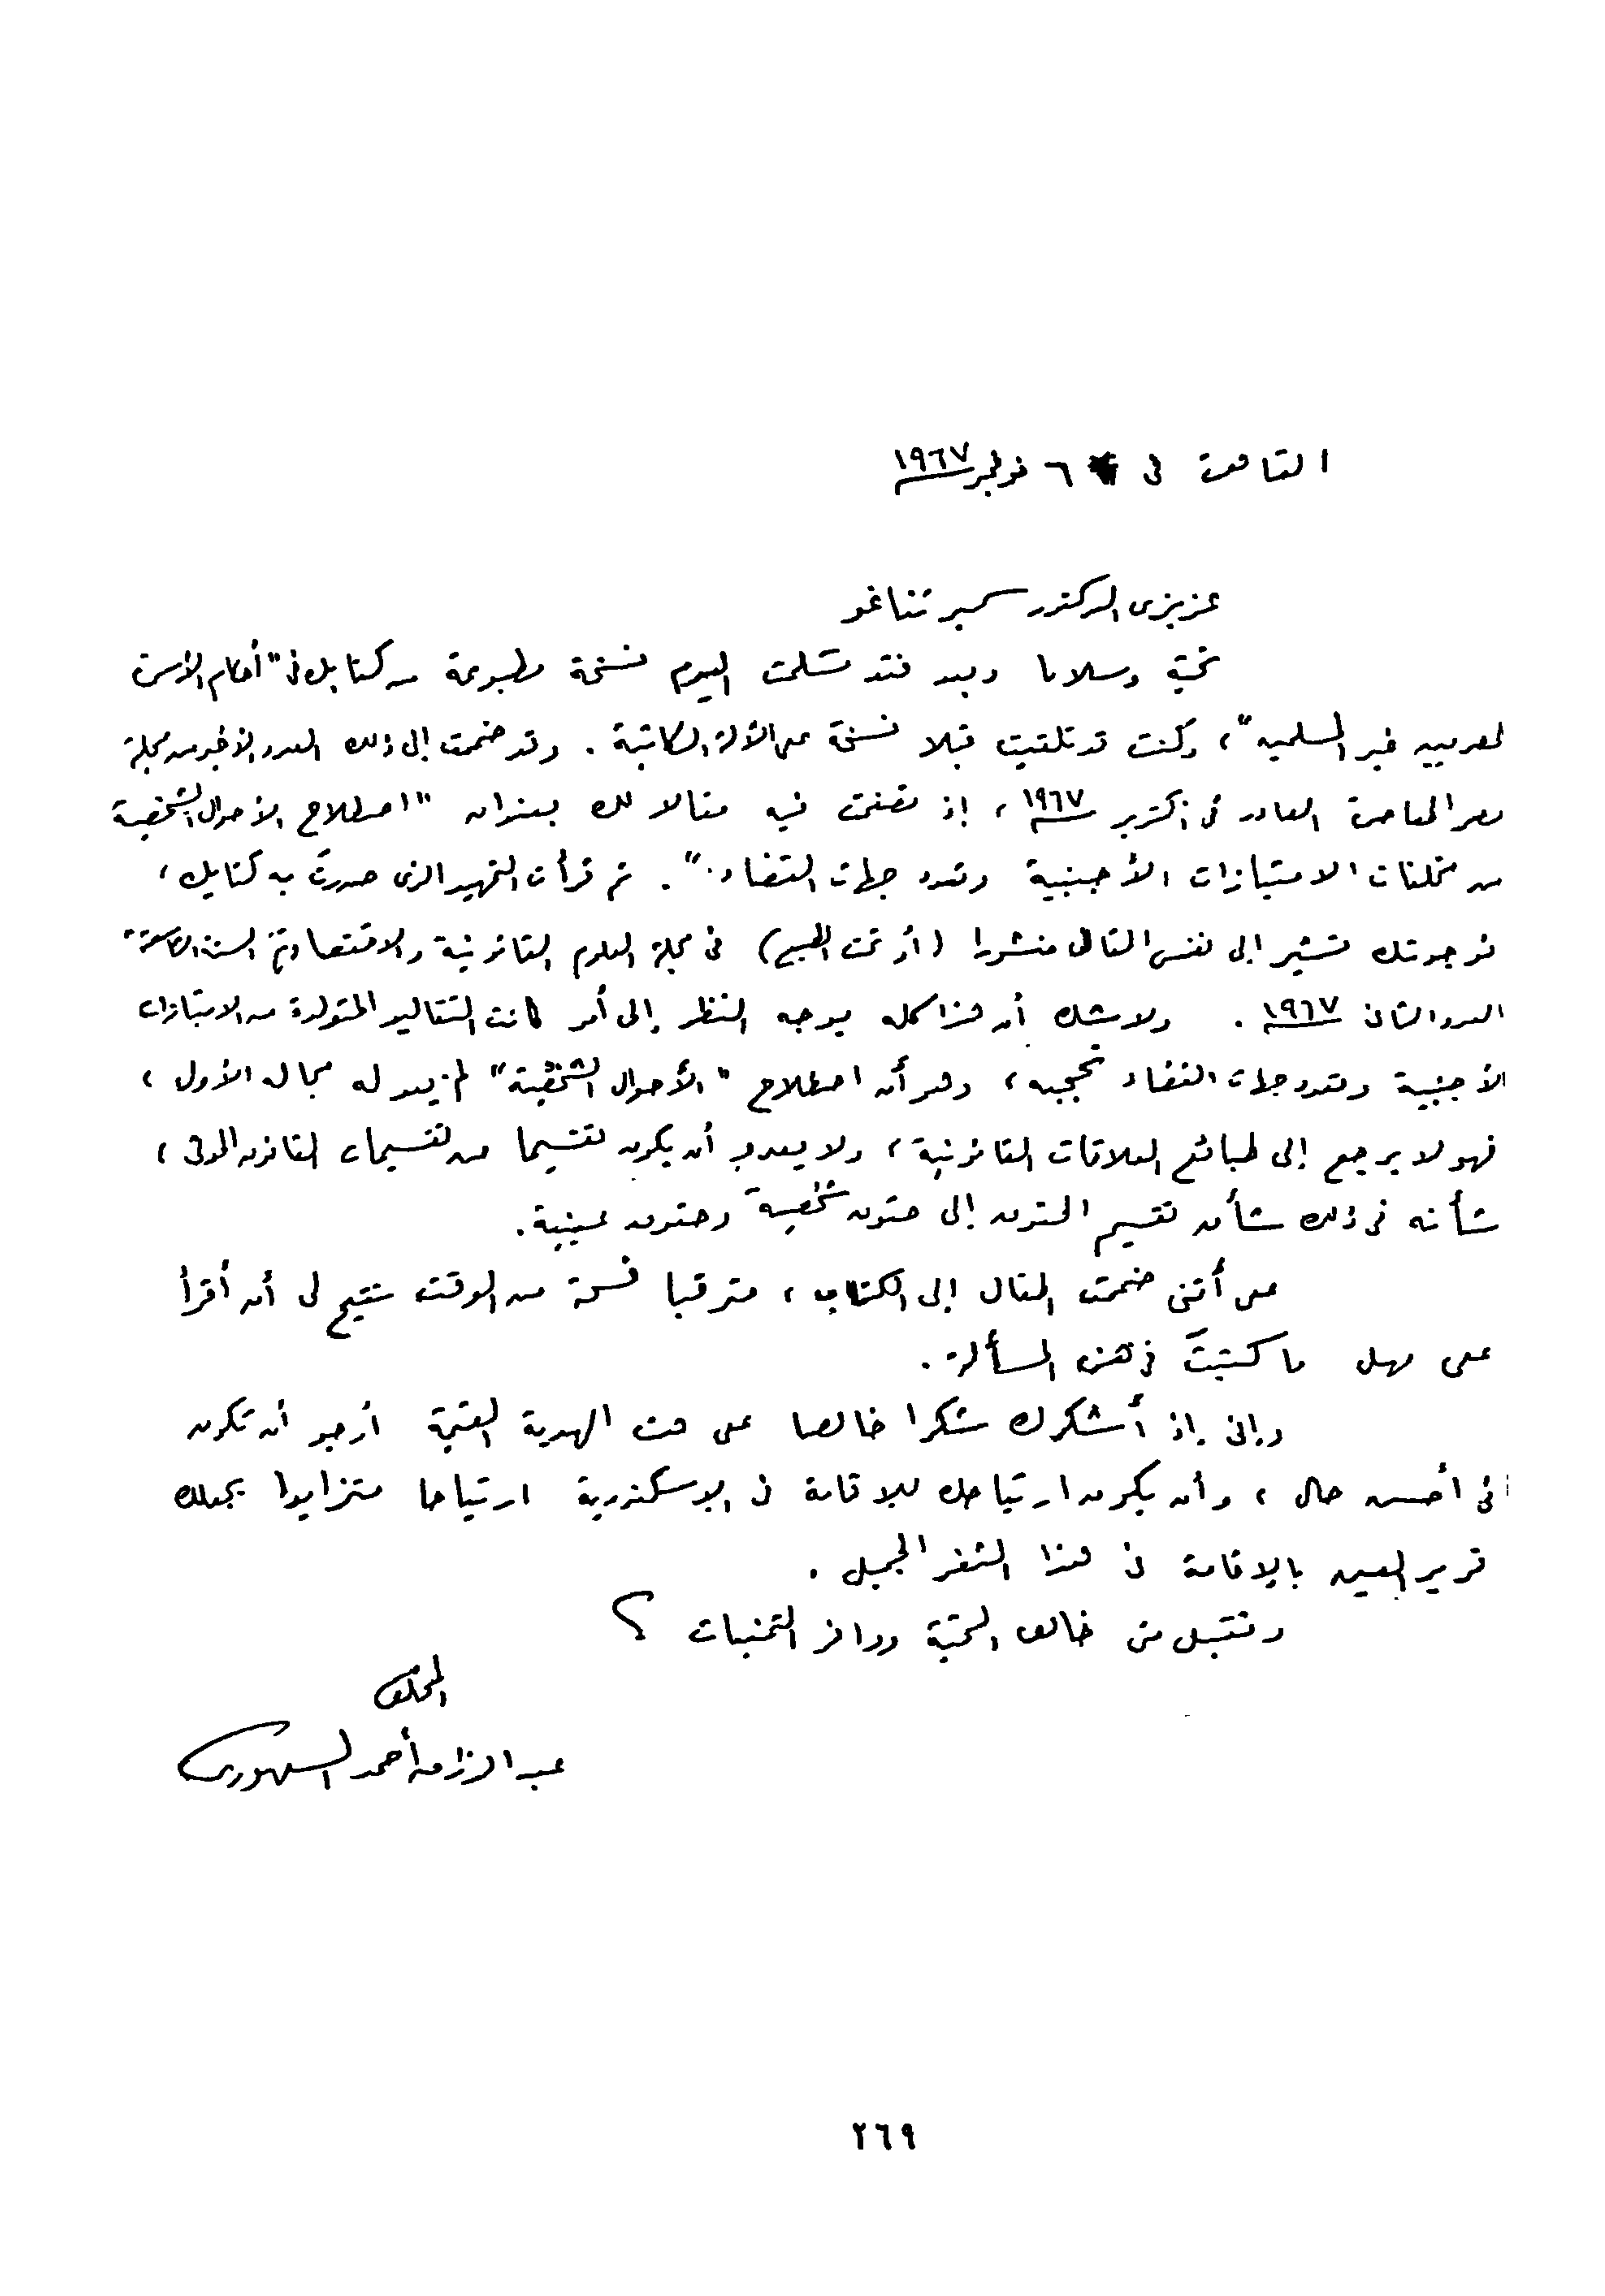 القاهرة فى ٦ نوفمبر ١٩٦٧
عزيزى الدكتور سمير تناغو
تحية وسلاما وبعد فقد تسلمت اليوم نسخة مطبوعة من كتابك فى "أحكام الأسرة
لمصريين غير المسلمين"، وكنت قد تلقيت قبلا نسخة على الآلة الكاتبة. وقد ضممت إلى ذلك العدد الأخير من مجلة
مصر المعاصرة الصادر فى أكتوبر ١٩٦٧، إذ تضمنت فيه مقالا لك بعنوان "اصطلاح الأحوال الشخصية
من مخلفات الامتيازات الأجنبية وتعدد جهات القضاء.". ثم قرأت التمهيد الذى صدرتَ به كتابك،
فوجدتك تشير الى نفس المقال منشورا (أو تحت الطبع) فى مجلة العلوم القانونية والاقتصادية السنة التاسعة
العدد الثانى ١٩٦٧. ولا شك أن هذا كله يوجه النظر إلى أمر كانت التقاليد المتولدة من الامتيازات
الأجنبية وتعدد جهات القضاء تحجبه، وهو أن اصطلاح "الأحوال الشخصية" لم يعد له مجاله الأول،
فهو لا يرجع إلى طبائع العلاقات القانونية، ولا يعدو أن يكون تقسيما من تقسيمات القانون المدنى،
شأنه فى ذلك شأن تقسيم الحقوق إلى حقوق شخصية وحقوق عينية.
على أننى ضممت المقال إلى الكتاب، مترقبا فسحة من الوقت تتيح لى أن أقرأ
على مهل ما كتبتَ فى هذه المسألة.
وإنى إذ أشكرك شكرا خالصا على هذه الهدية القيمة أرجو أن تكون
فى أحسن حال، وأن يكون ارتياحك للإقامة فى الإسكندرية ارتياحا متزايدا يجعلك
قرير العين بالإقامة فى هذا الثغر الجميل.
وتقبل منى خالص التحية ووافر التمنيات
المخلص
عبد الرزاق أحمد السنهورى
٢٦٩